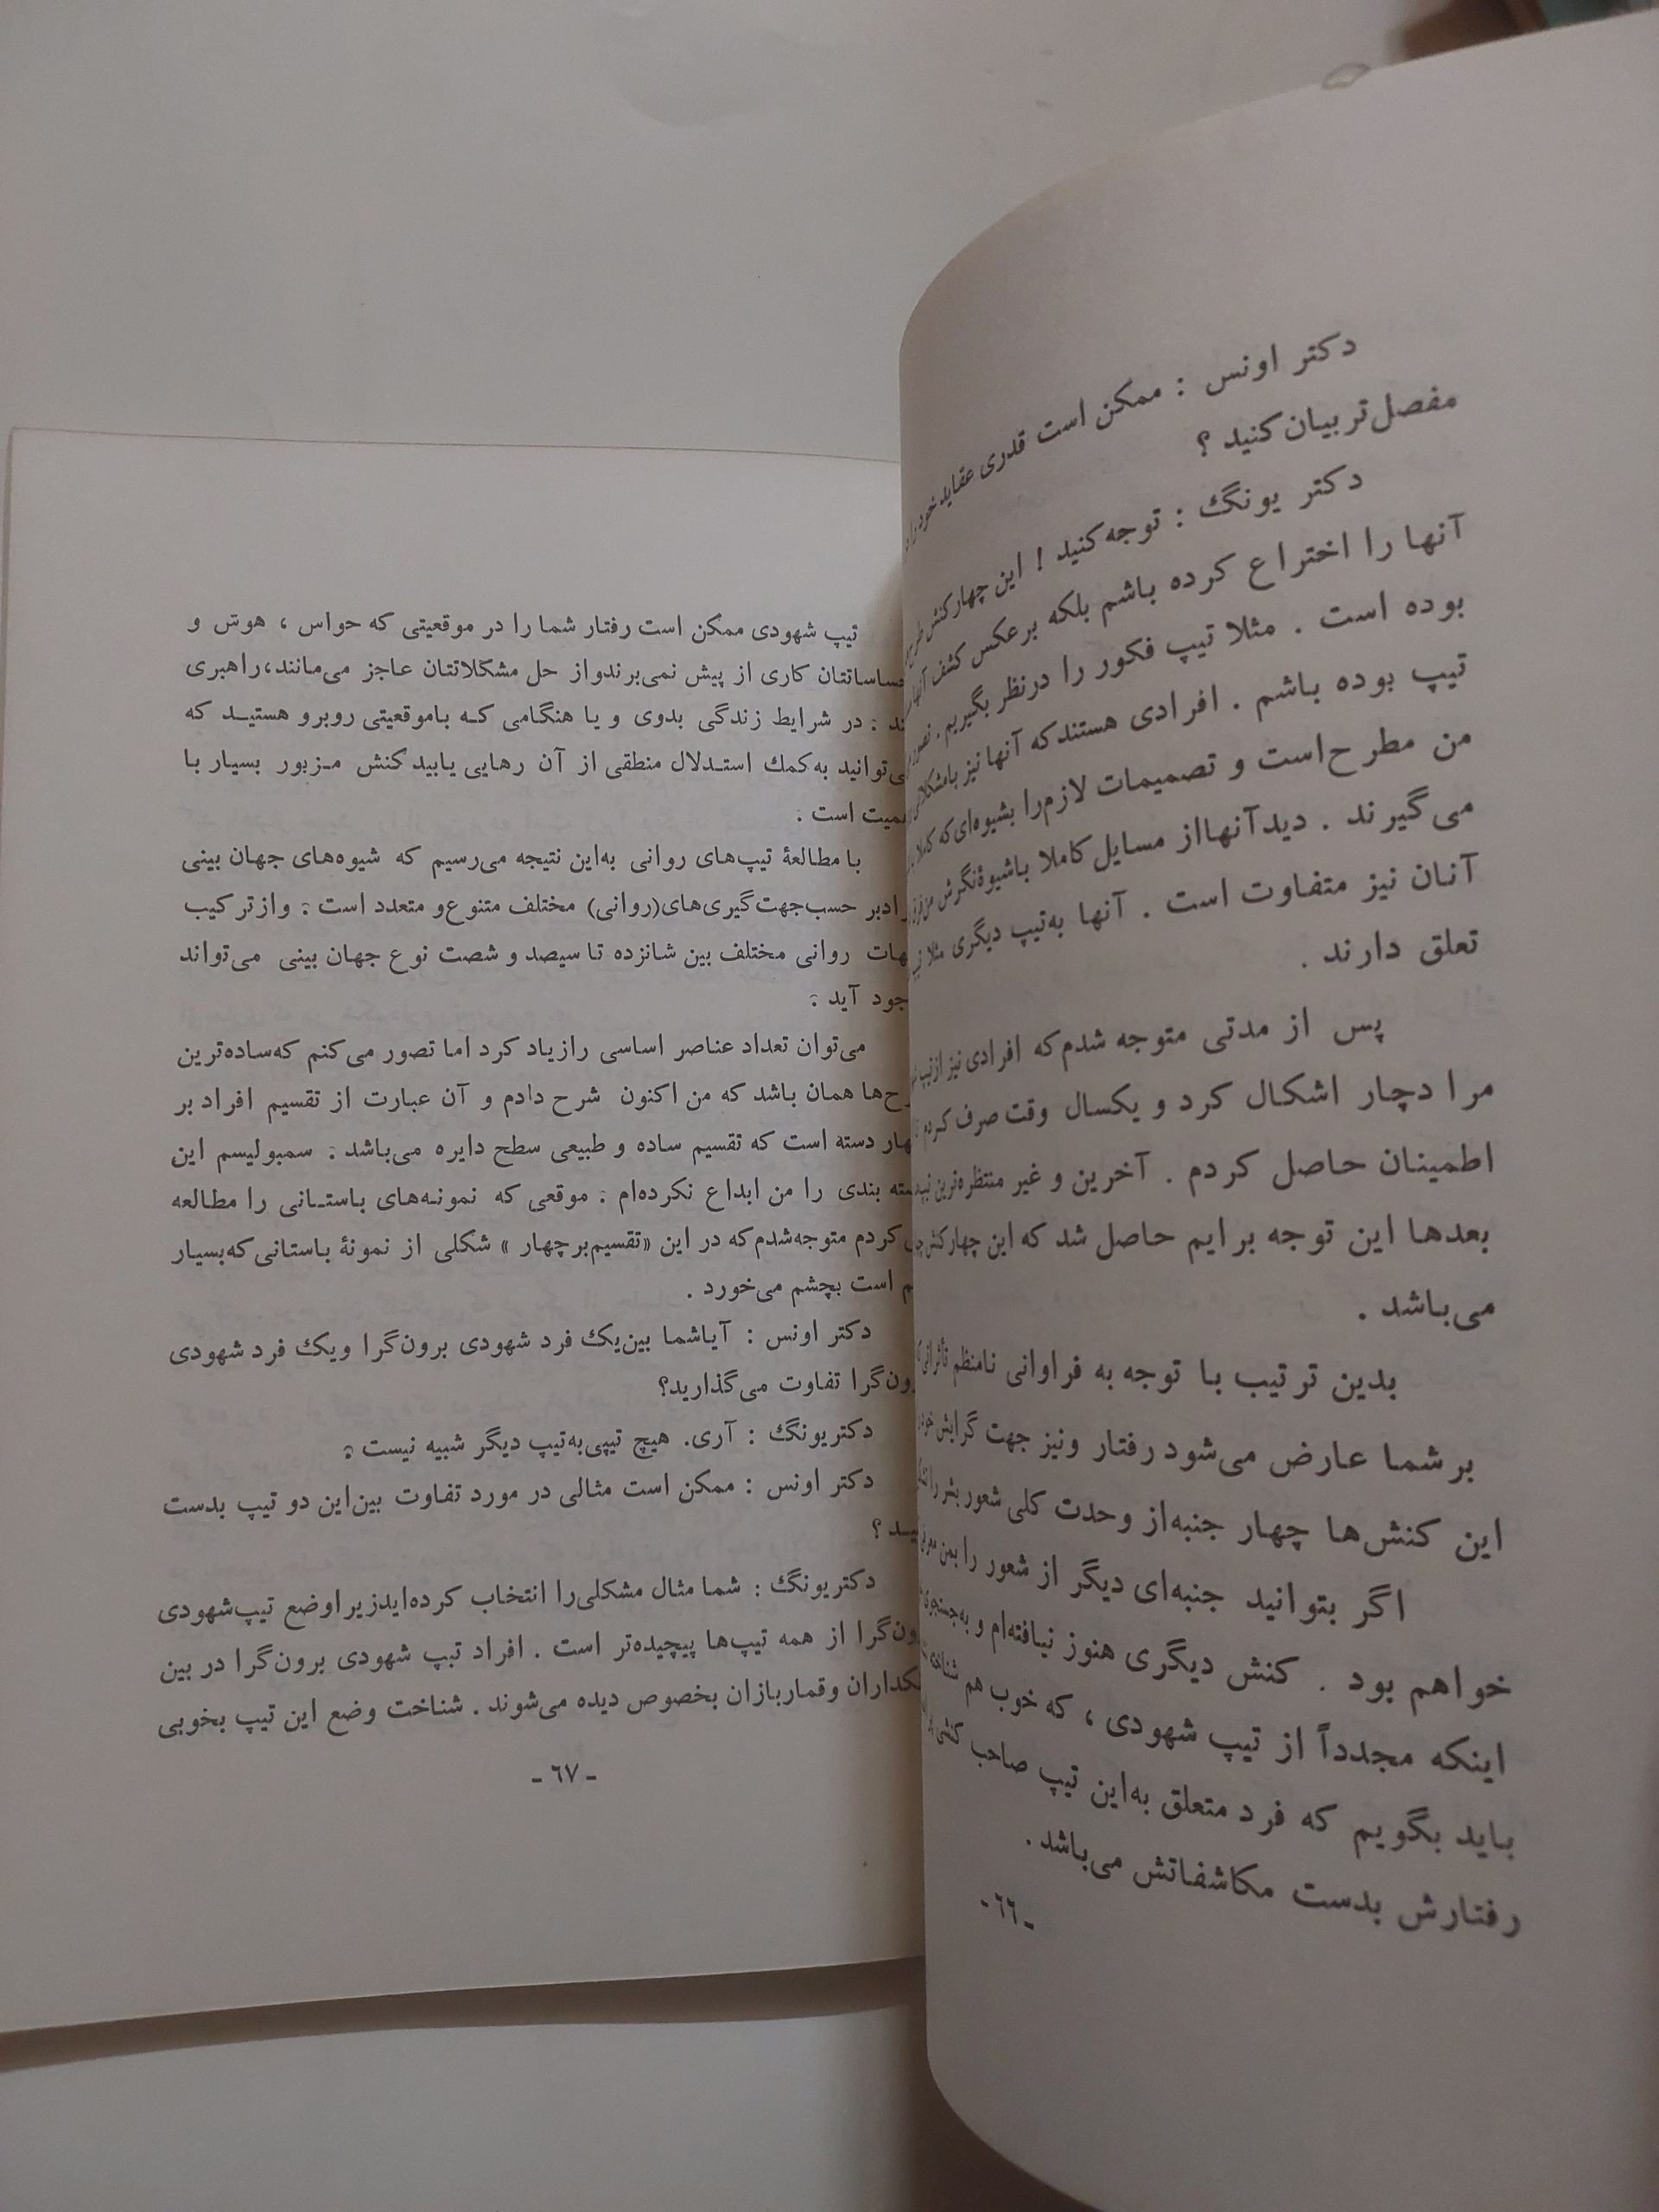 دکتر اونس : ممکن است قدری عقاید خود را
مفصل‌تر بیان کنید ؟
دکتر یونگ : توجه کنید ! این چهار کنش
آنها را اختراع کرده باشم بلکه برعکس کشف آنها
بوده است . مثلا تیپ فکور را درنظر بگیریم .
تیپ بوده باشم . افرادی هستند که آنها نیز بامشکلاتی
من مطرح است و تصمیمات لازم‌را بشیوه‌ای که کاملا
می‌گیرند . دید آنها از مسایل کاملا باشیوهٔ نگرش من
آنان نیز متفاوت است . آنها به‌تیپ دیگری مثلا
تعلق دارند .
پس از مدتی متوجه شدم که افرادی نیز از تیپ
مرا دچار اشکال کرد و یکسال وقت صرف کردم
اطمینان حاصل کردم . آخرین و غیر منتظره‌ترین
بعدها این توجه برایم حاصل شد که این چهار کنش
می‌باشد .
بدین ترتیب با توجه به فراوانی نامنظم تأثراتی
بر شما عارض می‌شود رفتار ونیز جهت گرایش خود
این کنش‌ها چهار جنبه‌از وحدت کلی شعور بشر را
اگر بتوانید جنبه‌ای دیگر از شعور را بمن
خواهم بود . کنش دیگری هنوز نیافته‌ام و به‌جستجوی
اینکه مجدداً از تیپ شهودی ، که خوب هم
باید بگویم که فرد متعلق به‌این تیپ صاحب کنشی
رفتارش بدست مکاشفاتش می‌باشد .
- ٦٦ -
تیپ شهودی ممکن است رفتار شما را در موقعیتی که حواس ، هوش و
کاری از پیش نمی‌برند واز حل مشکلاتتان عاجز می‌مانند، راهبری
در شرایط زندگی بدوی و یا هنگامی که باموقعیتی روبرو هستید که
به‌کمك استدلال منطقی از آن رهایی یابید کنش مزبور بسیار با
است .
با مطالعهٔ تیپ‌های روانی به‌این نتیجه می‌رسیم که شیوه‌های جهان بینی
حسب‌جهت‌گیری‌های(روانی) مختلف متنوع‌و متعدد است . واز ترکیب
روانی مختلف بین شانزده تا سیصد و شصت نوع جهان بینی می‌تواند
آید .
می‌توان تعداد عناصر اساسی رازیاد کرد اما تصور می‌کنم که‌ساده‌ترین
همان باشد که من اکنون شرح دادم و آن عبارت از تقسیم افراد بر
دسته است که تقسیم ساده و طبیعی سطح دایره می‌باشد . سمبولیسم این
بندی را من ابداع نکرده‌ام . موقعی که نمونه‌های باستانی را مطالعه
کردم متوجه‌شدم که در این «تقسیم‌بر چهار » شکلی از نمونهٔ باستانی که‌بسیار
است بچشم می‌خورد .
دکتر اونس : آیاشما بین‌یك فرد شهودی برون‌گرا ویك فرد شهودی
تفاوت می‌گذارید؟
دکتریونگ : آری. هیچ تیپی‌به‌تیپ دیگر شبیه نیست .
دکتر اونس : ممکن است مثالی در مورد تفاوت بین‌این دو تیپ بدست
؟
دکتریونگ : شما مثال مشکلی‌را انتخاب کرده‌ایدزیرا وضع تیپ‌شهودی
از همه تیپ‌ها پیچیده‌تر است . افراد تیپ شهودی برون‌گرا در بین
وقماربازان بخصوص دیده می‌شوند . شناخت وضع این تیپ بخوبی
- ٦٧ -